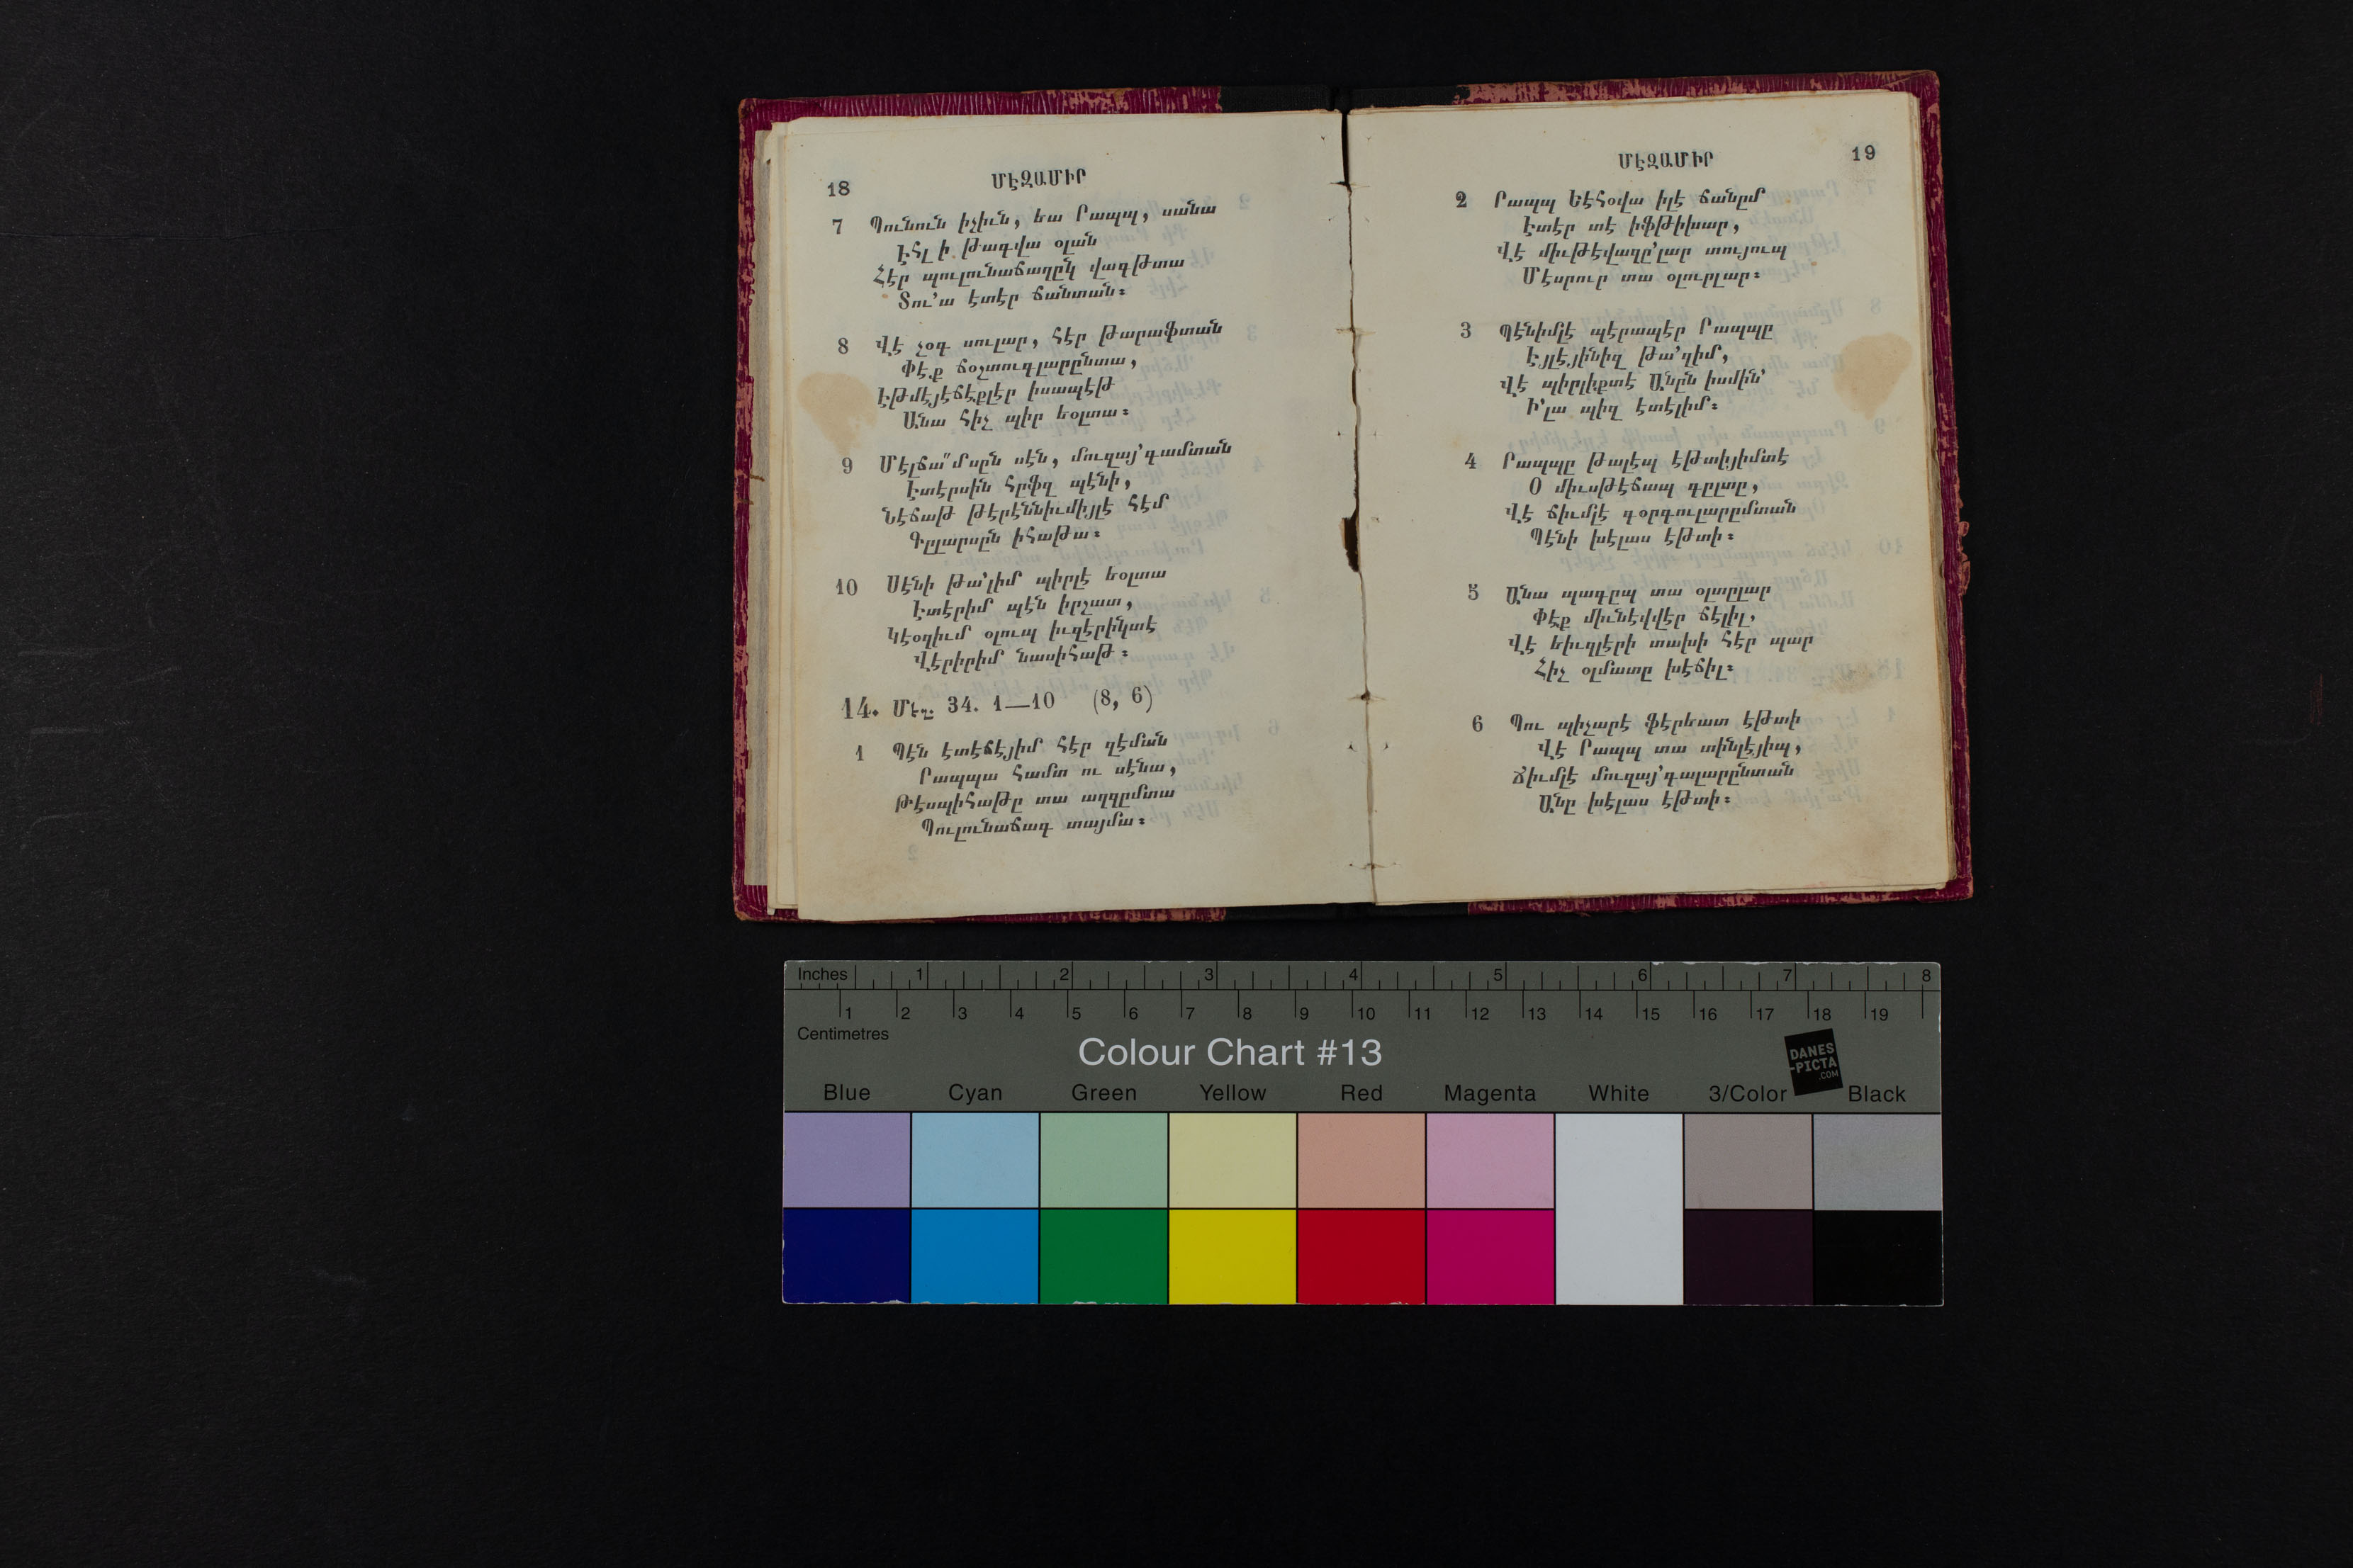 18
ՄԷԶԱՄԻՐ
7 Պունուն իչիւն, եա Րապպ, սանա
Էհլ ի թագվա օլան
Հէր պուլունաճաղըն վագթտա
Տու՚ա էտէր ճանտան։
8 Վէ չօգ սուլար, հէր թարաֆտան
Փէք ճօշտուգլարընտա,
Էթմէյէճէքլէր իսապէթ
Անա հիչ պիր եօլտա։
9 Մէլճա՞մսըն սէն, մուզայ՚գամտան
Էտէրսին հըֆզ պէնի,
Նէճաթ թէրէննիւմիյլէ հէմ
Գըլարսըն իհաթա։
10 Սէնի թա՚լիմ պիրլէ եօլտա
Էտէրիմ պէն իրշատ,
Կէօզիւմ օլուպ իւզէրինտէ
Վէրիրիմ նասիհաթ։
14. Մէզ. 34. 1—10 (8, 6)
1 Պէն էտէճէյիմ հէր զէման
Րապպա համտ ու սէնա,
Թէսպիհաթը տա աղզըմտա
Պուլունաճագ տայմա։
2
19
ՄԷԶԱՄԻՐ
2 Րապպ Եէհօվա իլէ ճանըմ
Էտէր տէ իֆթիխար,
Վէ միւթէվազը՚լար տույուպ
Մէսրուր տա օլուրլար։
3 Պէնիմլէ պէրապէր Րապպը
Էյլէյինիզ թա՚զիմ,
Վէ պիրլիքտէ Անըն իսմին՚
Ի՚լա պիզ էտէլիմ։
4 Րապպը թալէպ էթտիյիմտէ
Օ միւսթէճապ գըլտը,
Վէ ճիւմլէ գօրգուլարըմտան
Պէնի խէլաս էթտի։
5 Անա պագըպ տա օլտըլար
Փէք միւնէվվէր ճէլիլ,
Վէ եիւզլէրի տախի հէր պար
Հիչ օլմատը խէճիլ։
6 Պու պիչարէ ֆէրեատ էթտի
Վէ Րապպ տա տինլէյիպ,
Ճիւմլէ մուզայ՚գալարընտան
Անը խէլաս էթտի։
Inches 1 2 3 4 5 6 7 8
1 2 3 4 5 6 7 8 9 10 11 12 13 14 15 16 17 18 19
Centimetres
Colour Chart #13
DANES
-PICTA
.COM
Blue Cyan Green Yellow Red Magenta White 3/Color Black